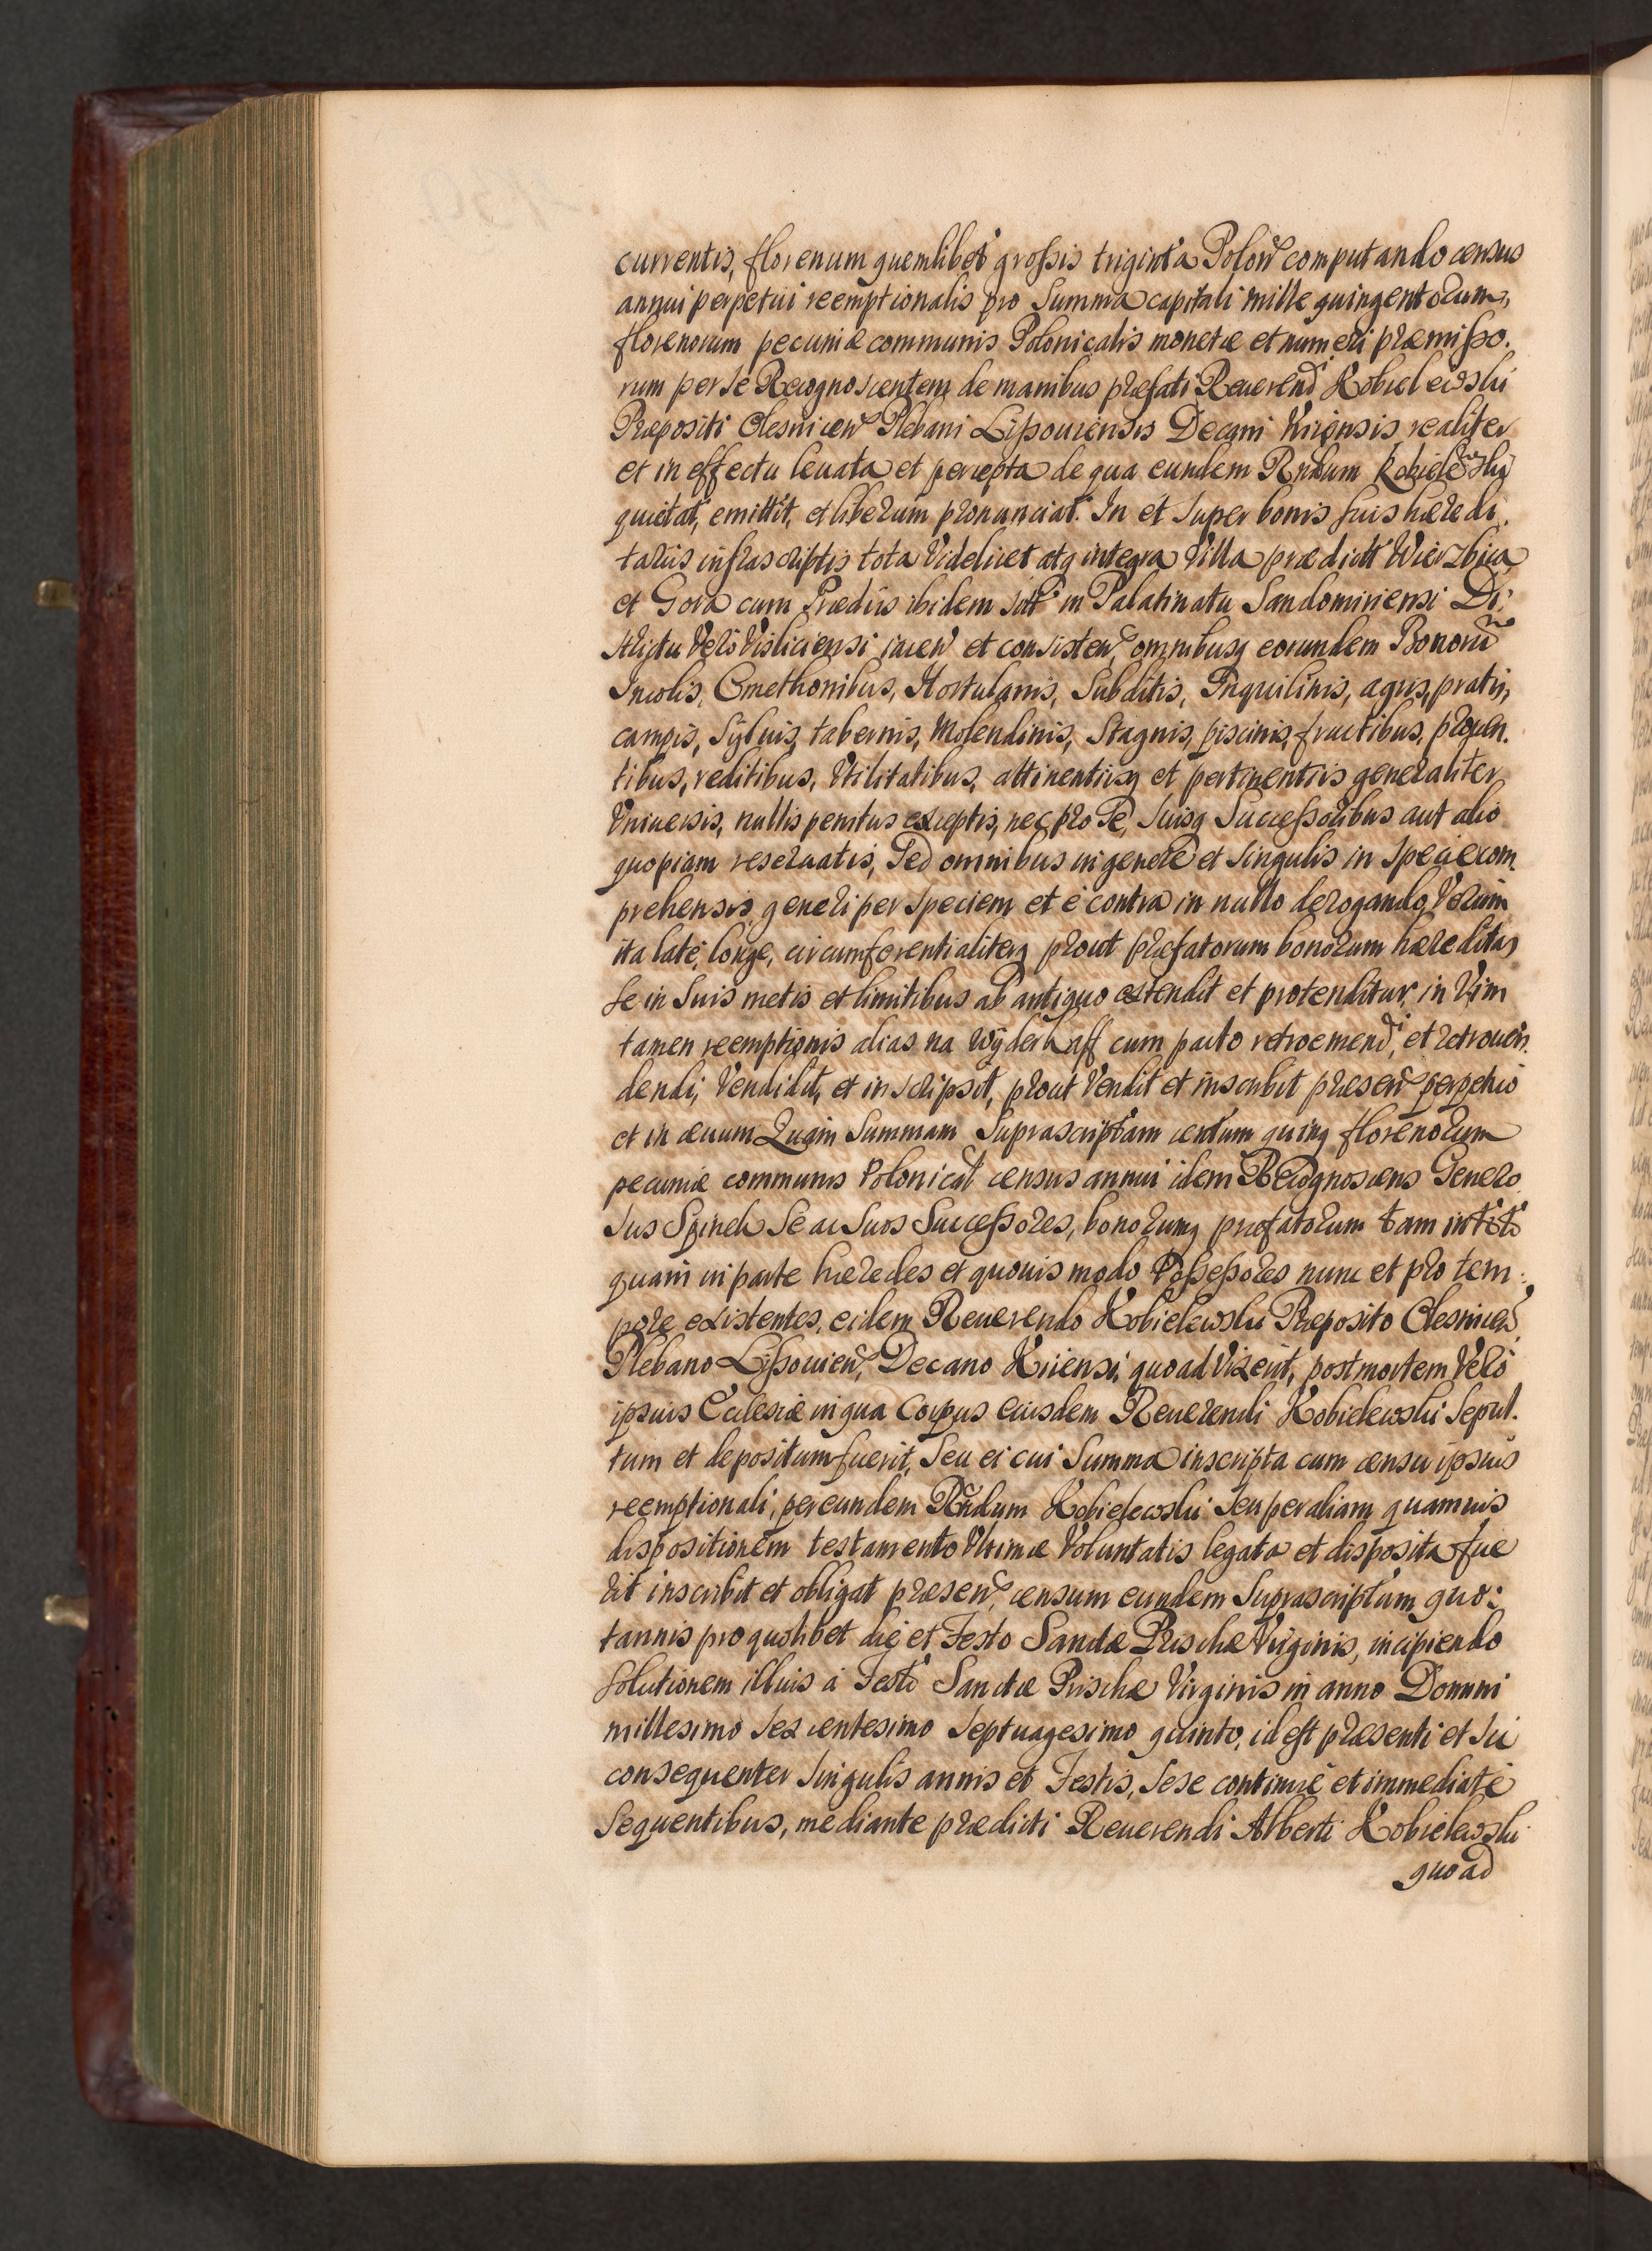 currentis, florenum quemlibet grossis triginta Polon computando census
annui perpetui reemptionalis pro Summa capitali mille quingentorum,
florenorum pecuniæ communis Polonicalis monetæ et numeri præmisso.
rum per se Recognoscentem de manibus præfati Reuerend Kobielewski
Præpositi Olesnicen Plebani Lissouiensis Decani Kiiensis realiter
et in effectu leuata et percepta de qua eundem Rndum Kobielewski
quietat, emittit, et liberum pronunciat. In et Super bonis suis hæredi,
tariis infrascriptis tota Videlicet atq integra Villa prædict Wierzbica
et Gora cum Prædiis ibidem sitt in Palatinatu Sandomiriensi Di:
strictu Vero Visliciensi iacen et consisten, omnibusq eorundem Bonorum
Incolis, Cmethonibus, Hortulanis, Subditis, Inquilinis, agris, pratis,
campis, Syluis, tabernis, Molendinis, Stagnis, piscinis, fructibus, prouen.
tibus, reditibus, Vtilitatibus, attinentiisq et pertinentiis generaliter
Vniuersis, nullis penitus exceptis, nec pro Se, Suisq Successoribus aut alio
quopiam reseruatis, Sed omnibus in genere et Singulis in Specie com
prehensis, generi per Speciem et è contra in nullo derogando, Verum
ita latè, longe, circumferentialiterq prout præfatorum bonorum hæreditas
Se in Suis metis et limitibus ab antiquo extendit et protenditur, in Vim
tamen reemptionis alias na wyderkaff cum pacto retroemend, et retrouen.
dendi, Vendidit, et inscripsit, prout Vendit et inscribit præsen perpetuo
et in æuum Quam Summam Suprascriptam centum quinq florenorum
pecuniæ communis Polonical census annui idem Recognoscens Genero
sus Spinek Se ac Suos Successores, bonorumq præfatorum tam in toto
quam in parte hæredes et quouis modo Possessores nunc et pro tem:
pore existentes, eidem Reuerendo Kobielewski Præposito Olesnicen
Plebano Lissouien, Decano Kiiensi, quoad Vixerit, post mortem Vero
ipsuis Ecclesiæ in qua Corpus eiusdem Reuerendi Kobielewski Sepul.
tum et depositum fuerit, Seu ei cui Summa inscripta cum censu ipsius
reemptionali, per eundem Rndum Kobielewski Seu per aliam quamuis
dispositionem testamento Vltimæ Voluntatis legata et disposita fue
rit inscribit et obligat præsen, censum eundem Suprascriptum quo:
tannis pro quolibet die et Festo Sanctæ Prischæ Virginis, incipiendo
Solutionem illius à Festo Sanctæ Prischæ Virginis in anno Domini
millesimo Sexcentesimo Septuagesimo quinto, id est præsenti et Sic
consequenter Singulis annis et Festis, Sese continuè et immediatè
Sequentibus, mediante prædicti Reuerendi Alberti Kobielewski
quoad